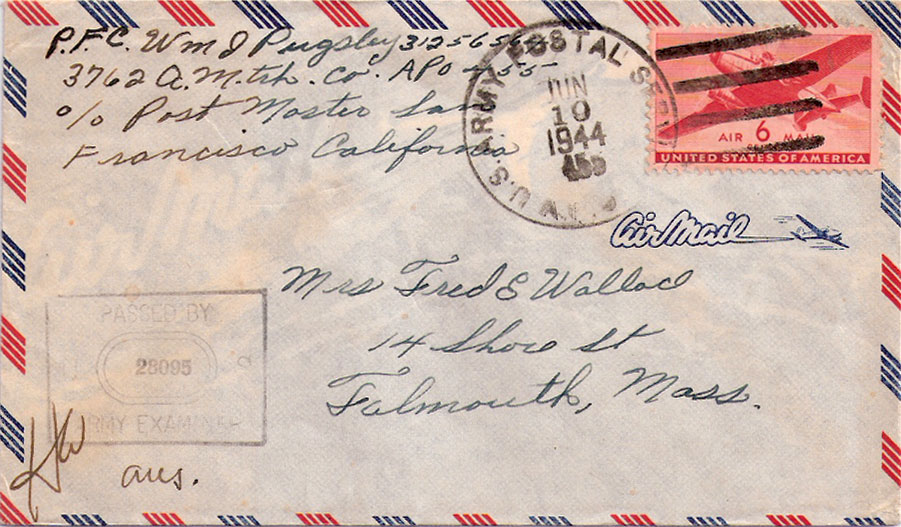 P.F.C. Wm J Pugsley
3762 Q.M. trk. Co. APO 455
c/o Post Master San
Francisco California
U.S. ARMY POSTAL
A.P.O.
JUN
10
1944
455
AIR 6 MAIL
UNITED STATES OF AMERICA
Air Mail
Mrs Fred E Wallace
14 Shore St
Falmouth, Mass.
PASSED BY
28095
ARMY EXAMINER
ans.